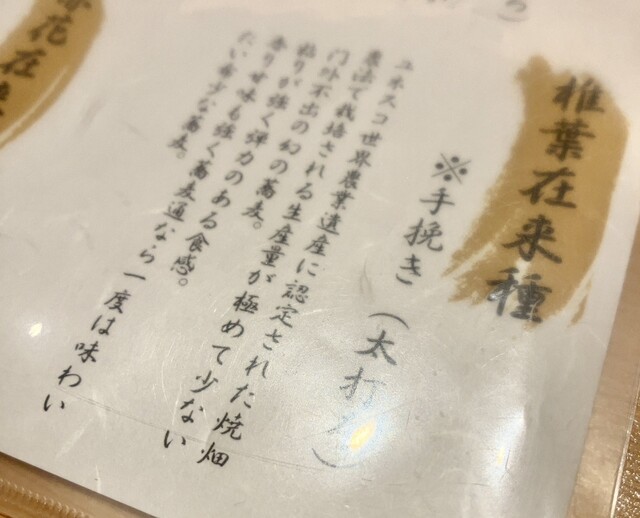 椎葉在来種
※手挽き(太打ち)
ユネスコ世界農業遺産に認定された焼畑
農法で栽培される生産量が極めて少ない
門外不出の幻の蕎麦。
粘りが強く弾力のある食感。
香り甘味も強く蕎麦通なら一度は味わい
たい希少な蕎麦。
花在来